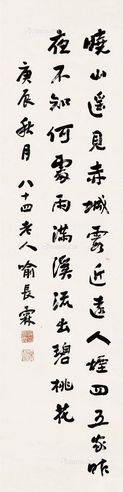 曉山遙見赤城霞近遠人煙四五家昨
夜不知何處雨滿溪流出碧桃花
庚辰秋月 八十四老人喻長霖